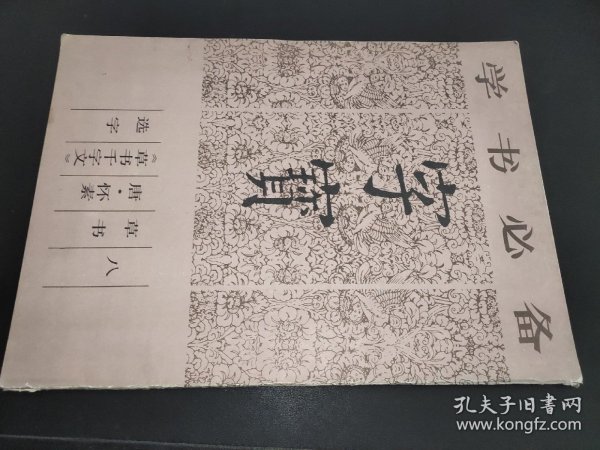 学书必备
字寶
八
草书
唐·怀素
《草书千字文》
选字
孔夫子旧书网
www.kongfz.com